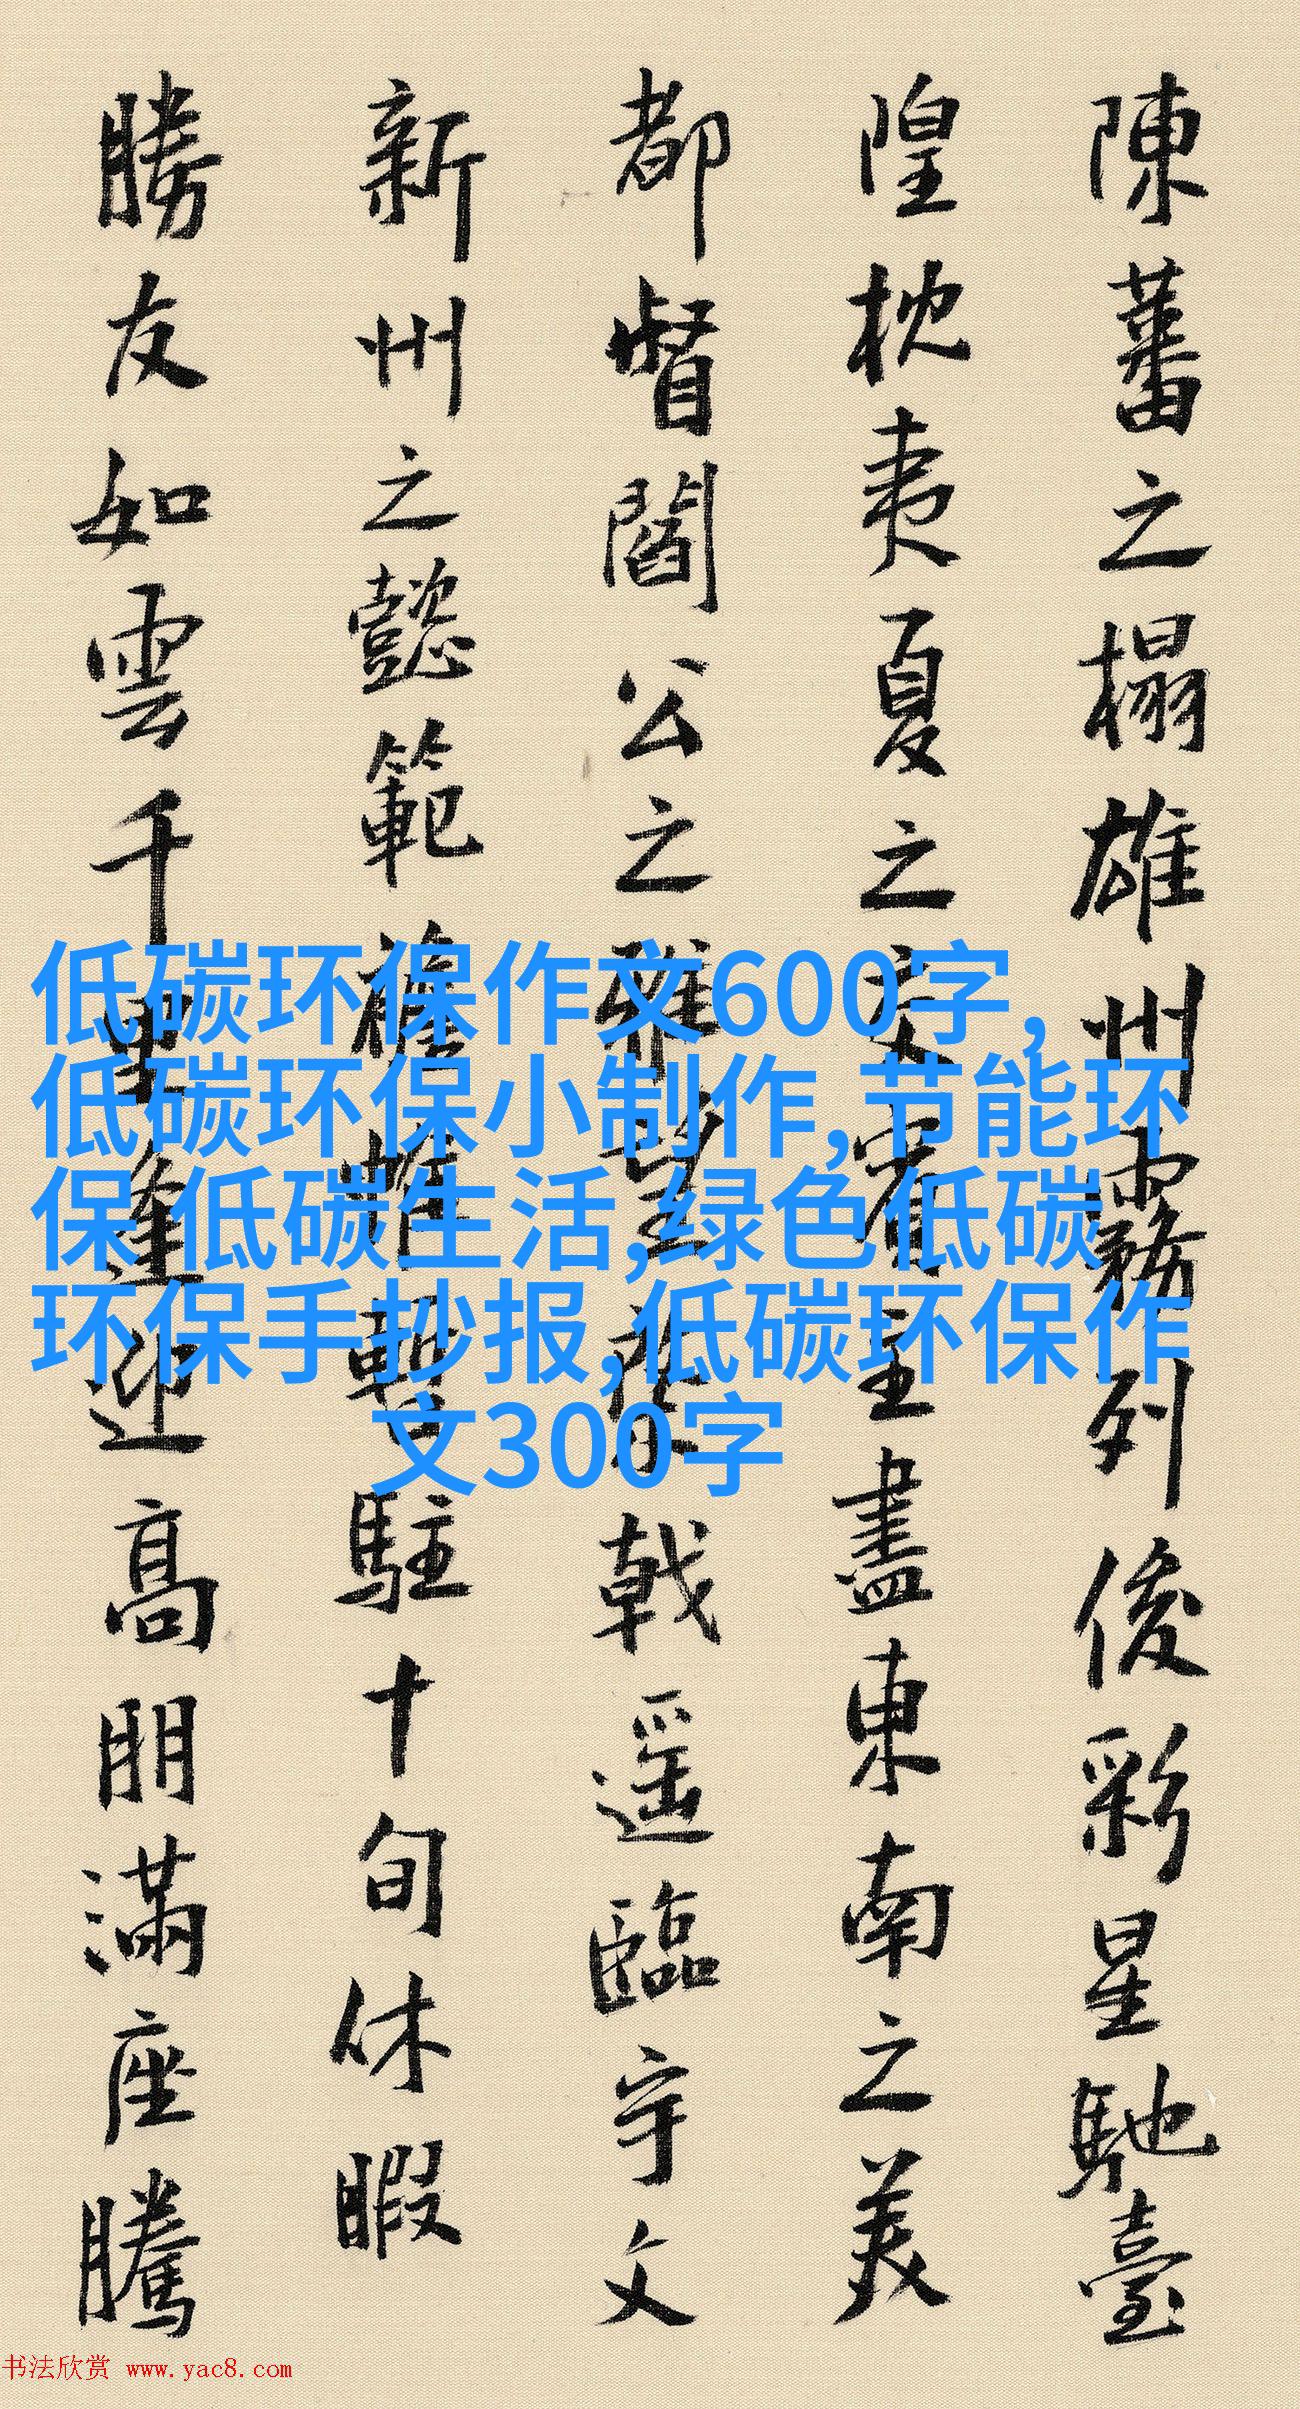 陳蕃之榻雄州霧列俊彩星馳臺
隍枕夷夏之交賓主盡東南之美
都督閻公之雅望棨戟遥臨宇文
新州之懿範襜帷暫駐十旬休暇
勝友如雲千里逢迎高朋滿座騰
低碳环保作文600字,
低碳环保小制作,节能环
保 低碳生活,绿色低碳
环保手抄报,低碳环保作
文300字
书法欣赏 www.yac8.com